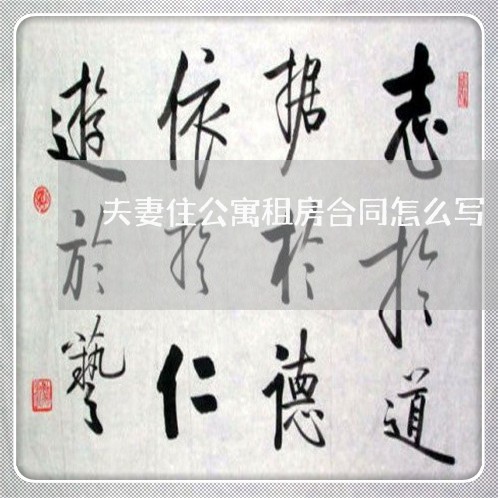 志於道
据於德
依於仁
遊於藝
夫妻住公寓租房合同怎么写